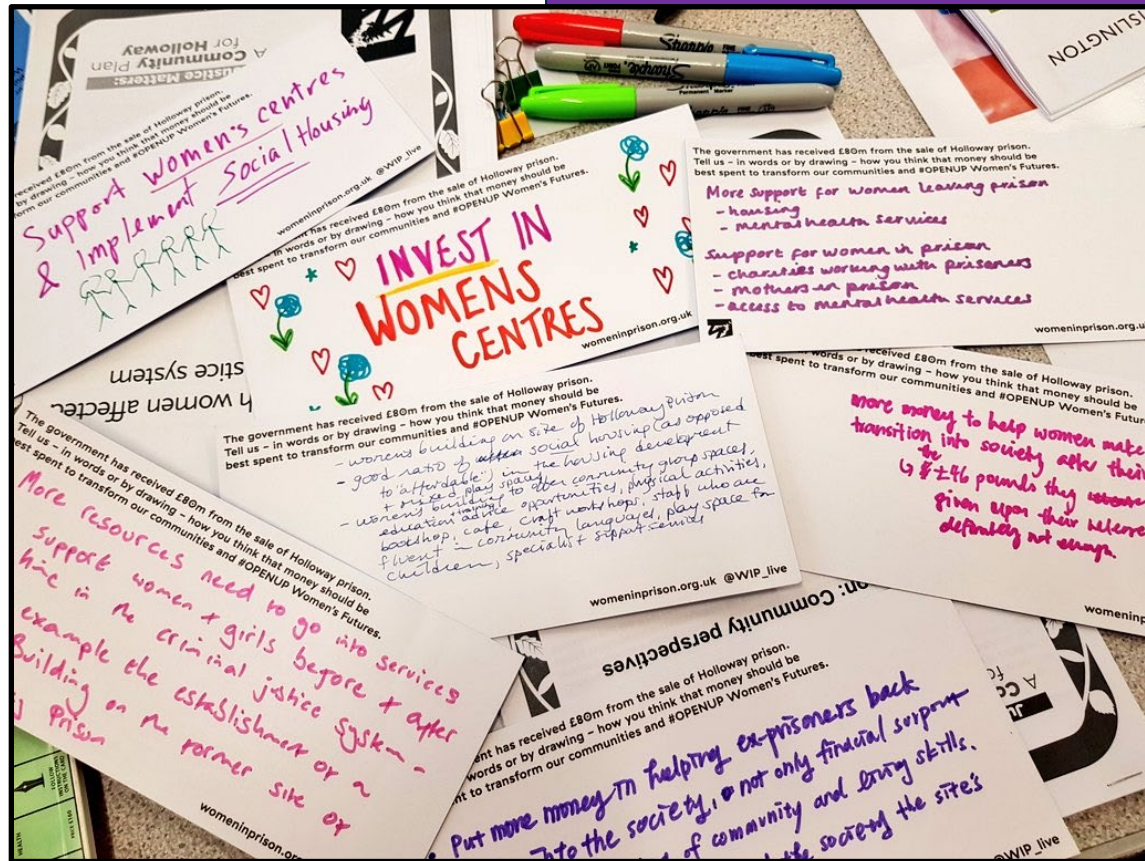 A Community Plan
for Holloway
Justice Matters:
received £80m from the sale of Holloway prison.
by drawing – how you think that money should be
form our communities and #OPENUP Women's Futures.
Support women's centres
& implement Social Housing
womeninprison.org.uk @WIP_live
Sharpie
Sharpie
Permanent Marker
SLINGTON
has received £80m from the sale of Holloway prison.
in words or by drawing – how you think that money should be
best spent to transform our communities and #OPENUP Women's Futures.
INVEST IN
WOMENS
CENTRES
womeninprison.org.uk
The government has received £80m from the sale of Holloway prison.
Tell us – in words or by drawing – how you think that money should be
best spent to transform our communities and #OPENUP Women's Futures.
More support for women leaving prison
- housing
- mental health services
Support for women in prison
- charities working with prisoners
- mothers in prison
- access to mental health services
womeninprison.org.u
h women affected
stice system
The government has received £80m from the sale of Holloway prison.
Tell us – in words or by drawing – how you think that money should be
best spent to transform our communities and #OPENUP Women's Futures.
- women's building on site of Holloway Prison
- good ratio of social housing (as opposed
to "affordable") in the housing development
+ play spaces
- women's building to offer community group spaces,
education, training, advice opportunities, physical activities,
bookshop, cafe, craft workshops, staff who are
fluent in community languages, play space for
children, specialist support services
womeninprison.org.uk @WIP_live
received £80m from the sale of Holloway prison.
words or by drawing – how you think that money should be
best spent to transform our communities and #OPENUP Women's Futu
more money to help women make
transition into society after their
the
↳ £46 pounds they
given upon their release
definitely not enough.
womeninp
The government has received £80m from the sale of Holloway prison.
Tell us – in words or by drawing – how you think that money should be
best spent to transform our communities and #OPENUP Women's Futures.
More resources need to go into services
support women + girls before + after
time in the criminal justice system -
example the establishment of a
Building on the former site of
Prison
womeninprison.org
on: Community perspectives
ent has received £80m from the sale of Holloway prison.
words or by drawing – how you think that money should be
nt to transform our communities and #OPENUP Women's Futures.
• Put more money in helping ex-prisoners back
into the society, not only finacial surport
of community and living skills.
the society the site's
@WIP_live
FOLLOW
INSTRUCTIONS
ON THE CARD
PRICE £160
HEALTH